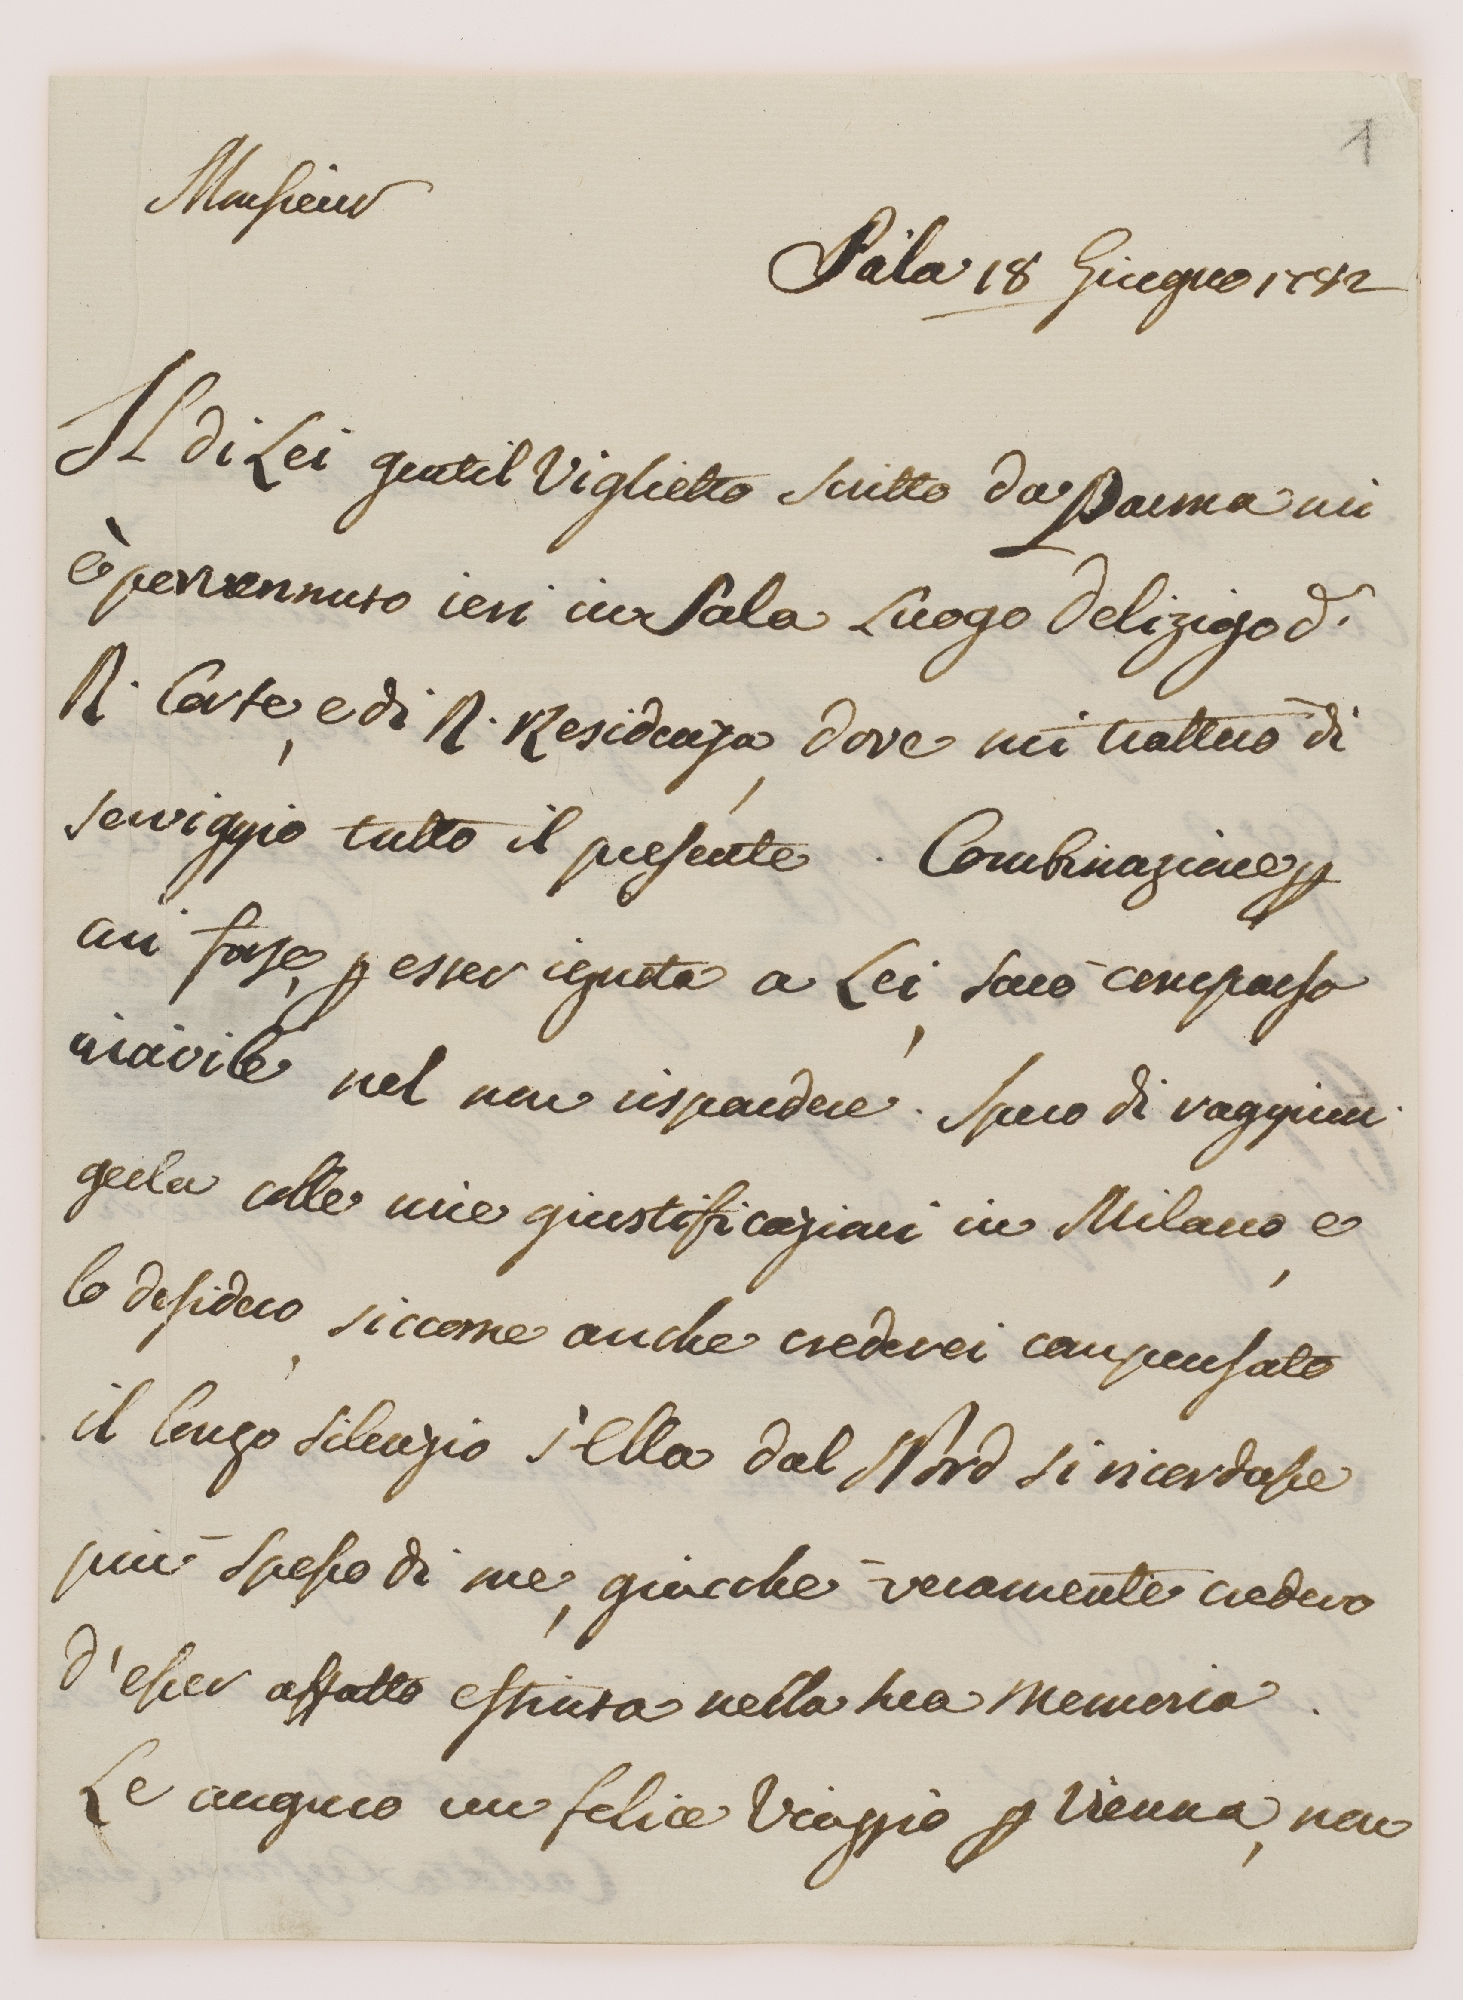 1
Monsieur
Sala 18 Giugno 1782
Il di Lei gentil Viglietto scritto da Parma mi
è pervennuto ieri in Sala Luogo delizioso d.
R. Corte, e di R. Residenza, dove mi tratterò di
serviggio tutto il presente. Combinazione p
cui forse, p esser ignota a Lei, sarò comparsa
incivile nel non rispondere. Spero di raggiun
gerla colle mie giustificazioni in Milano, e
lo desidero, siccome anche crederei compensato
il longo silenzio s'Ella dal Nord si ricordasse
più spesso di me, giacchè veramente credevo
d'esser affatto estinta nella sua memoria.
Le auguro un felice Viaggio p Vienna, non